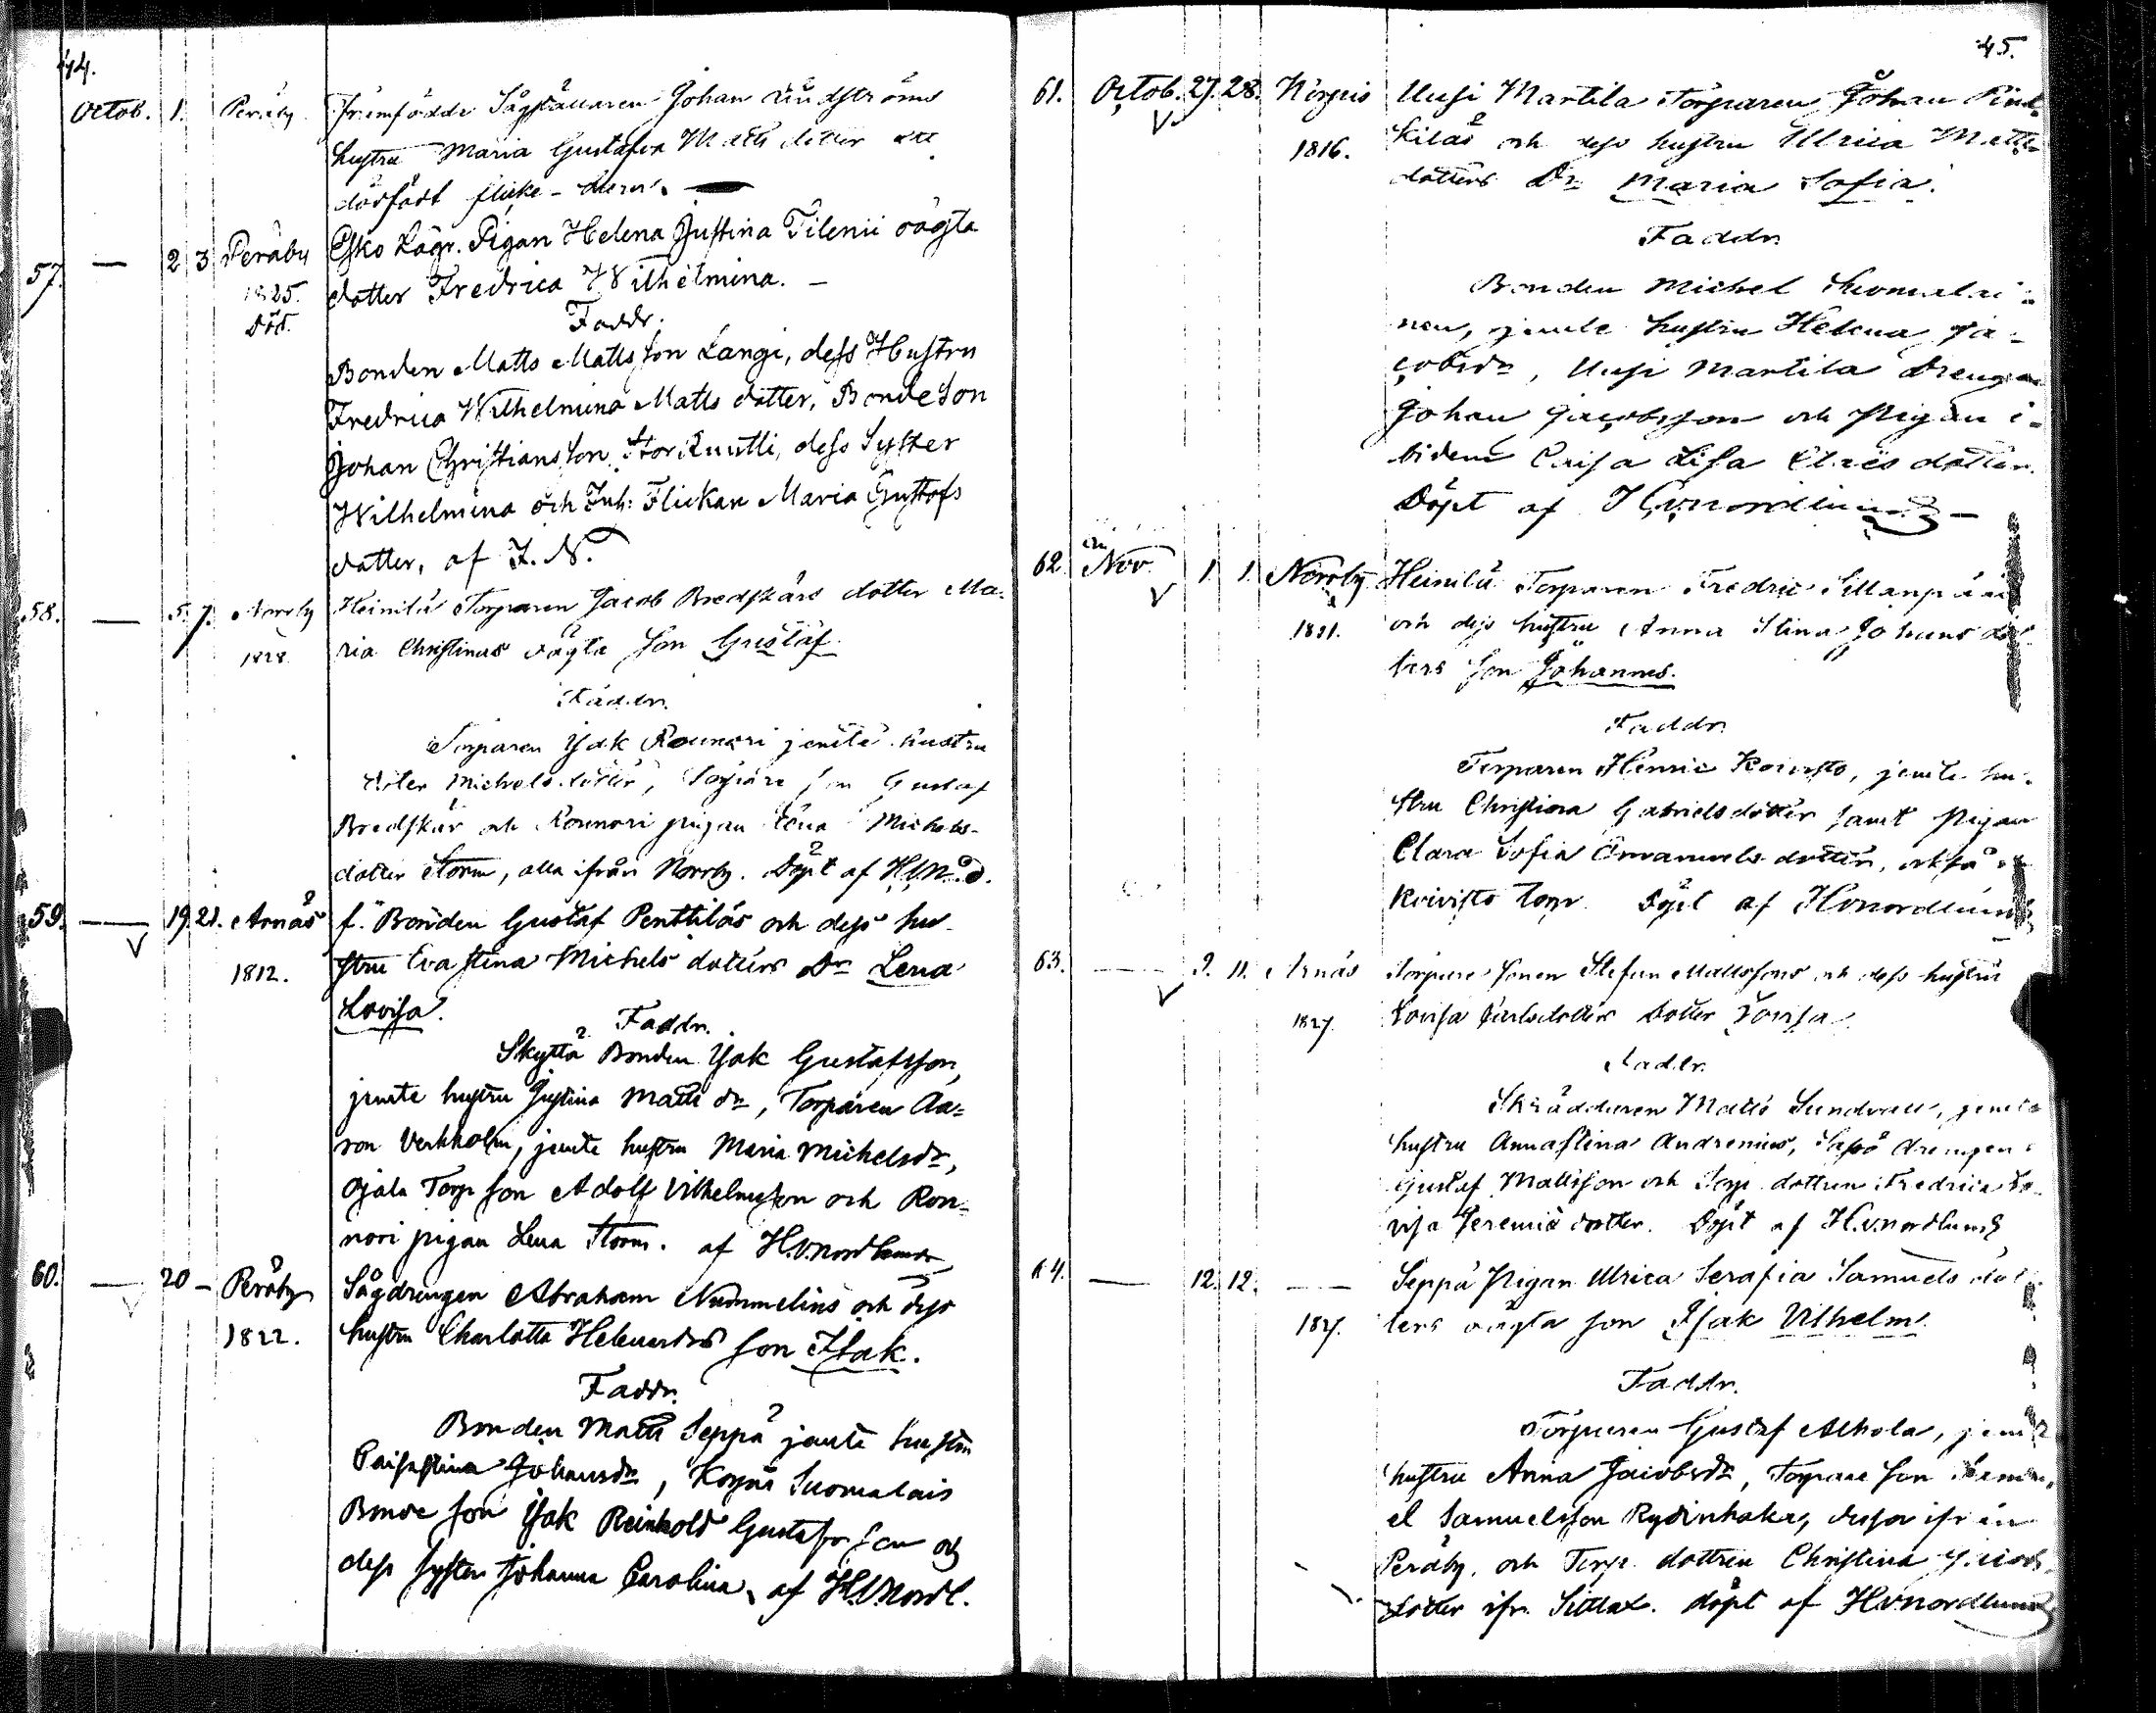 44.
Octob. 1. Peråby Framfödde Sågställaren Johan Lindströms
hustru Maria Gustafva Matts dotter ett
dödfödt flicke-barn.
57. — 2 3 Peräby Esko Lägr. Pigan Helena Justina Tilenii oägta
1825. dotter Fredrica Wilhelmina. —
Död. Faddr.
Bonden Matts Mattsson Längi, dess Hustru
Fredrica Wilhelmina Matts dotter, Bondeson
Johan Christiansson Storkuutti, dess Syster
Wilhelmina och Inh: Flickan Maria Gustafs
dotter, af I. N.
58. — 5. 7. Norrby Heinilä Torparen Jacob Bredskärs dotter Ma-
1828. ria Christinas oägta son Gustaf
Faddr.
Torparen Isak Rounari jemte hustru
Michelsdotter, Torpare son Gustaf
Bredskär och Rounari pigan Lena Michels-
dotter Storm, alla ifrån Norrby. Döpt af H.V.N.d.
59. — 19. 21. Arnäs f. Bonden Gustaf Penttiläs och dess hu-
1812. stru Eva Stina Michels dotters Dr Lena
Lovisa.
Faddr.
Skyttä Bonden Isak Gustafsson,
jemte hustru Justina Matts dr, Torparen Aa=
ron Verkholm, jemte hustru Maria Michelsdr,
Ojala Torp son Adolf Vilhelmsson och Ron=
nori pigan Lena Storm. af H.V.Nordlund
60. — 20 — Peråby Sågdrengen Abraham Nummelins och dess
1822. hustru Charlotta Helenasdrs son Isak.
Faddr.
Bonden Matts Seppä jemte hustru
Caisastina Johansdr, Korpi Suomalais
Bonde son Isak Reinhold Gustafsson och
dess syster Johanna Carolina, af H.V.Nordl.
45.
61. Octob. 27. 28. Nörpis Uusi Martila Torparen Johan Pent-
1816. kiläs och dess hustru Ulrica Matts-
dotters Dr Maria Sofia.
Faddr.
Bonden Michel Suomalai-
nen, jemte hustru Helena Ja-
cobsdr, Uusi Martila Drengen
Johan Jacobsson och Pigan i-
bidem Caisa Lisa Claës dotter.
Döpt af H.V.Nordlund —
62. Nov. 1. 1. Norrby Heinilä Torparen Fredric Sillanpää
1831. och dess hustru Anna Stina Johans dot-
ters son Johannes.
Faddr.
Torparen Henric Koivisto, jemte hu-
stru Christina Gabrielsdotter samt Pigan
Clara Sofia Emanuels dotter, också
Koivisto torp. Döpt af H.V.Nordlund
63. — 9. 11. Arnäs Torpare sonen Stefan Mattssons och dess hustru
1827. Lovisa Carlsdotters dotter Lovisa
Faddr.
Skräddaren Matts Sundvall, jemte
hustru Annastina Andrenius, Sassi drengen
Gustaf Mattsson och Torp. dottren Fredrica Lo-
visa Jeremiæ dotter. Döpt af H.V.Nordlund
64. — 12. 12. — Seppä Pigan Ulrica Serafia Samuels dot-
1827. ters oägta son Isak Vilhelm.
Faddr.
Torparen Gustaf Alhola, jemte
hustru Anna Jacobsdr, Torpare son Samu-
el Samuelsson Rydinhaka, dessa ifrån
Peråby, och Torp. dottren Christina Jacobs
dotter ifr. Sittlax. döpt af H.V.Nordlund